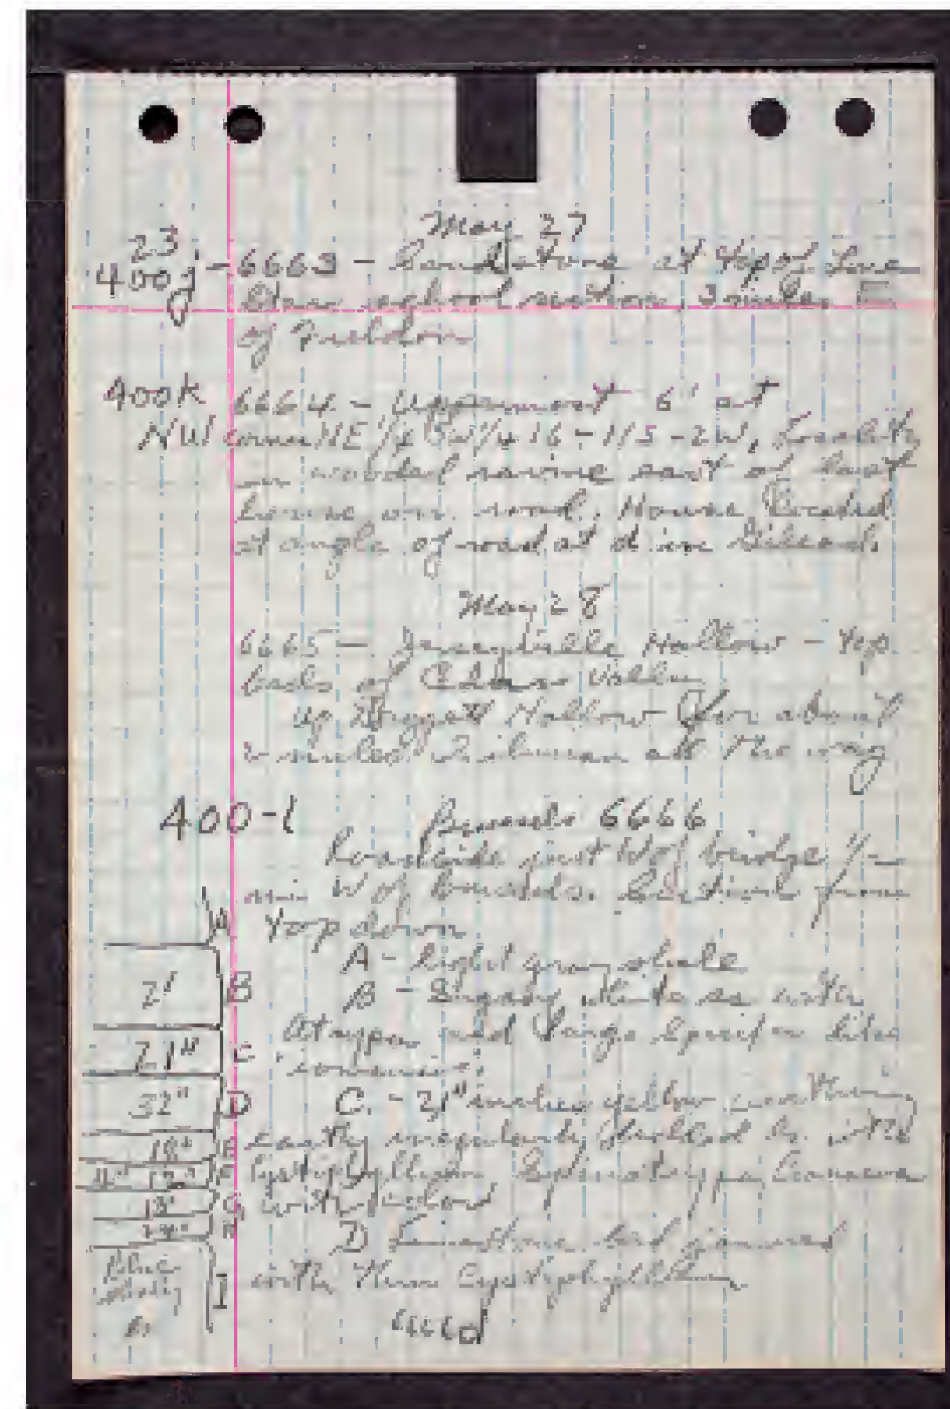 May 27
23
400j - 6663 - Sandstone at top of Lone
Star school section, 3 miles E
of Fieldon
400K 6664 - Uppermost 6' at
NW corner NE 1/4 SW 1/4 16-11S-2W, Locality
in wooded ravine east of last
house on road. House located
at angle of road at Gilead.
May 28
6665 - Hollow - top
beds of Cedar Valley
Up Hollow for about
2 miles. Silurian all the way
400-l Brussels 6666
Roadside just W of bridge 1/2
mi. W of Brussels. Section from
top down
A
A - light gray shale
21 B B - Sugary white ls with
Atrypa and large Spirifer like
21" C
32" D C. - 21" inches yellow weathering
18" E earthy irregularly bedded ls. with
4" 12" F Cystiphyllum
18" G with color
24" H D Limestone bed jammed
Blue I with thin Cystiphyllum
ls
6666d